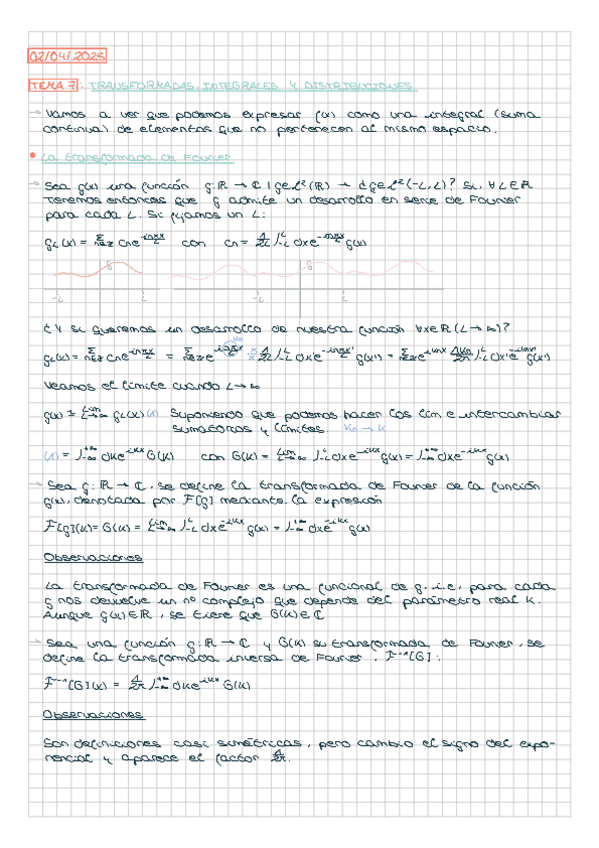 02/04/2025
TEMA 7: TRANSFORMADAS INTEGRALES Y DISTRIBUCIONES
→ Vamos a ver que podemos expresar f(x) como una integral (suma
continua) de elementos que no pertenecen al mismo espacio.
• La transformada de Fourier
→ Sea g(x) una función g: ℝ → ℂ | g∈L²(ℝ) → ¿g∈L²(-L,L)? Sí, ∀L∈ℝ
Tenemos entonces que g admite un desarrollo en serie de Fourier
para cada L. Si fijamos un L:
con
g g
-L L -L L
¿Y si queremos un desarrollo de nuestra función ∀x∈ℝ (L→∞)?
Veamos el límite cuando L→∞
g(x) = lim L→∞ g_L(x) (*) Suponiendo que podemos hacer los lim e intercambiar
sumatorios y límites. Kn → K
→ Sea g: ℝ → ℂ, se define la transformada de Fourier de la función
g(x), denotada por F[g] mediante la expresión
Observaciones
La transformada de Fourier es una funcional de g, i.e, para cada
g nos devuelve un nº complejo que depende del parámetro real K.
Aunque g(x)∈ℝ, se tiene que G(K)∈ℂ
→ Sea una función g: ℝ → ℂ y G(K) su transformada de Fourier, se
define la transformada inversa de Fourier, F⁻¹[G]:
Observaciones
Son definiciones casi simétricas, pero cambio el signo del expo-
nencial y aparece el factor 1/2π.